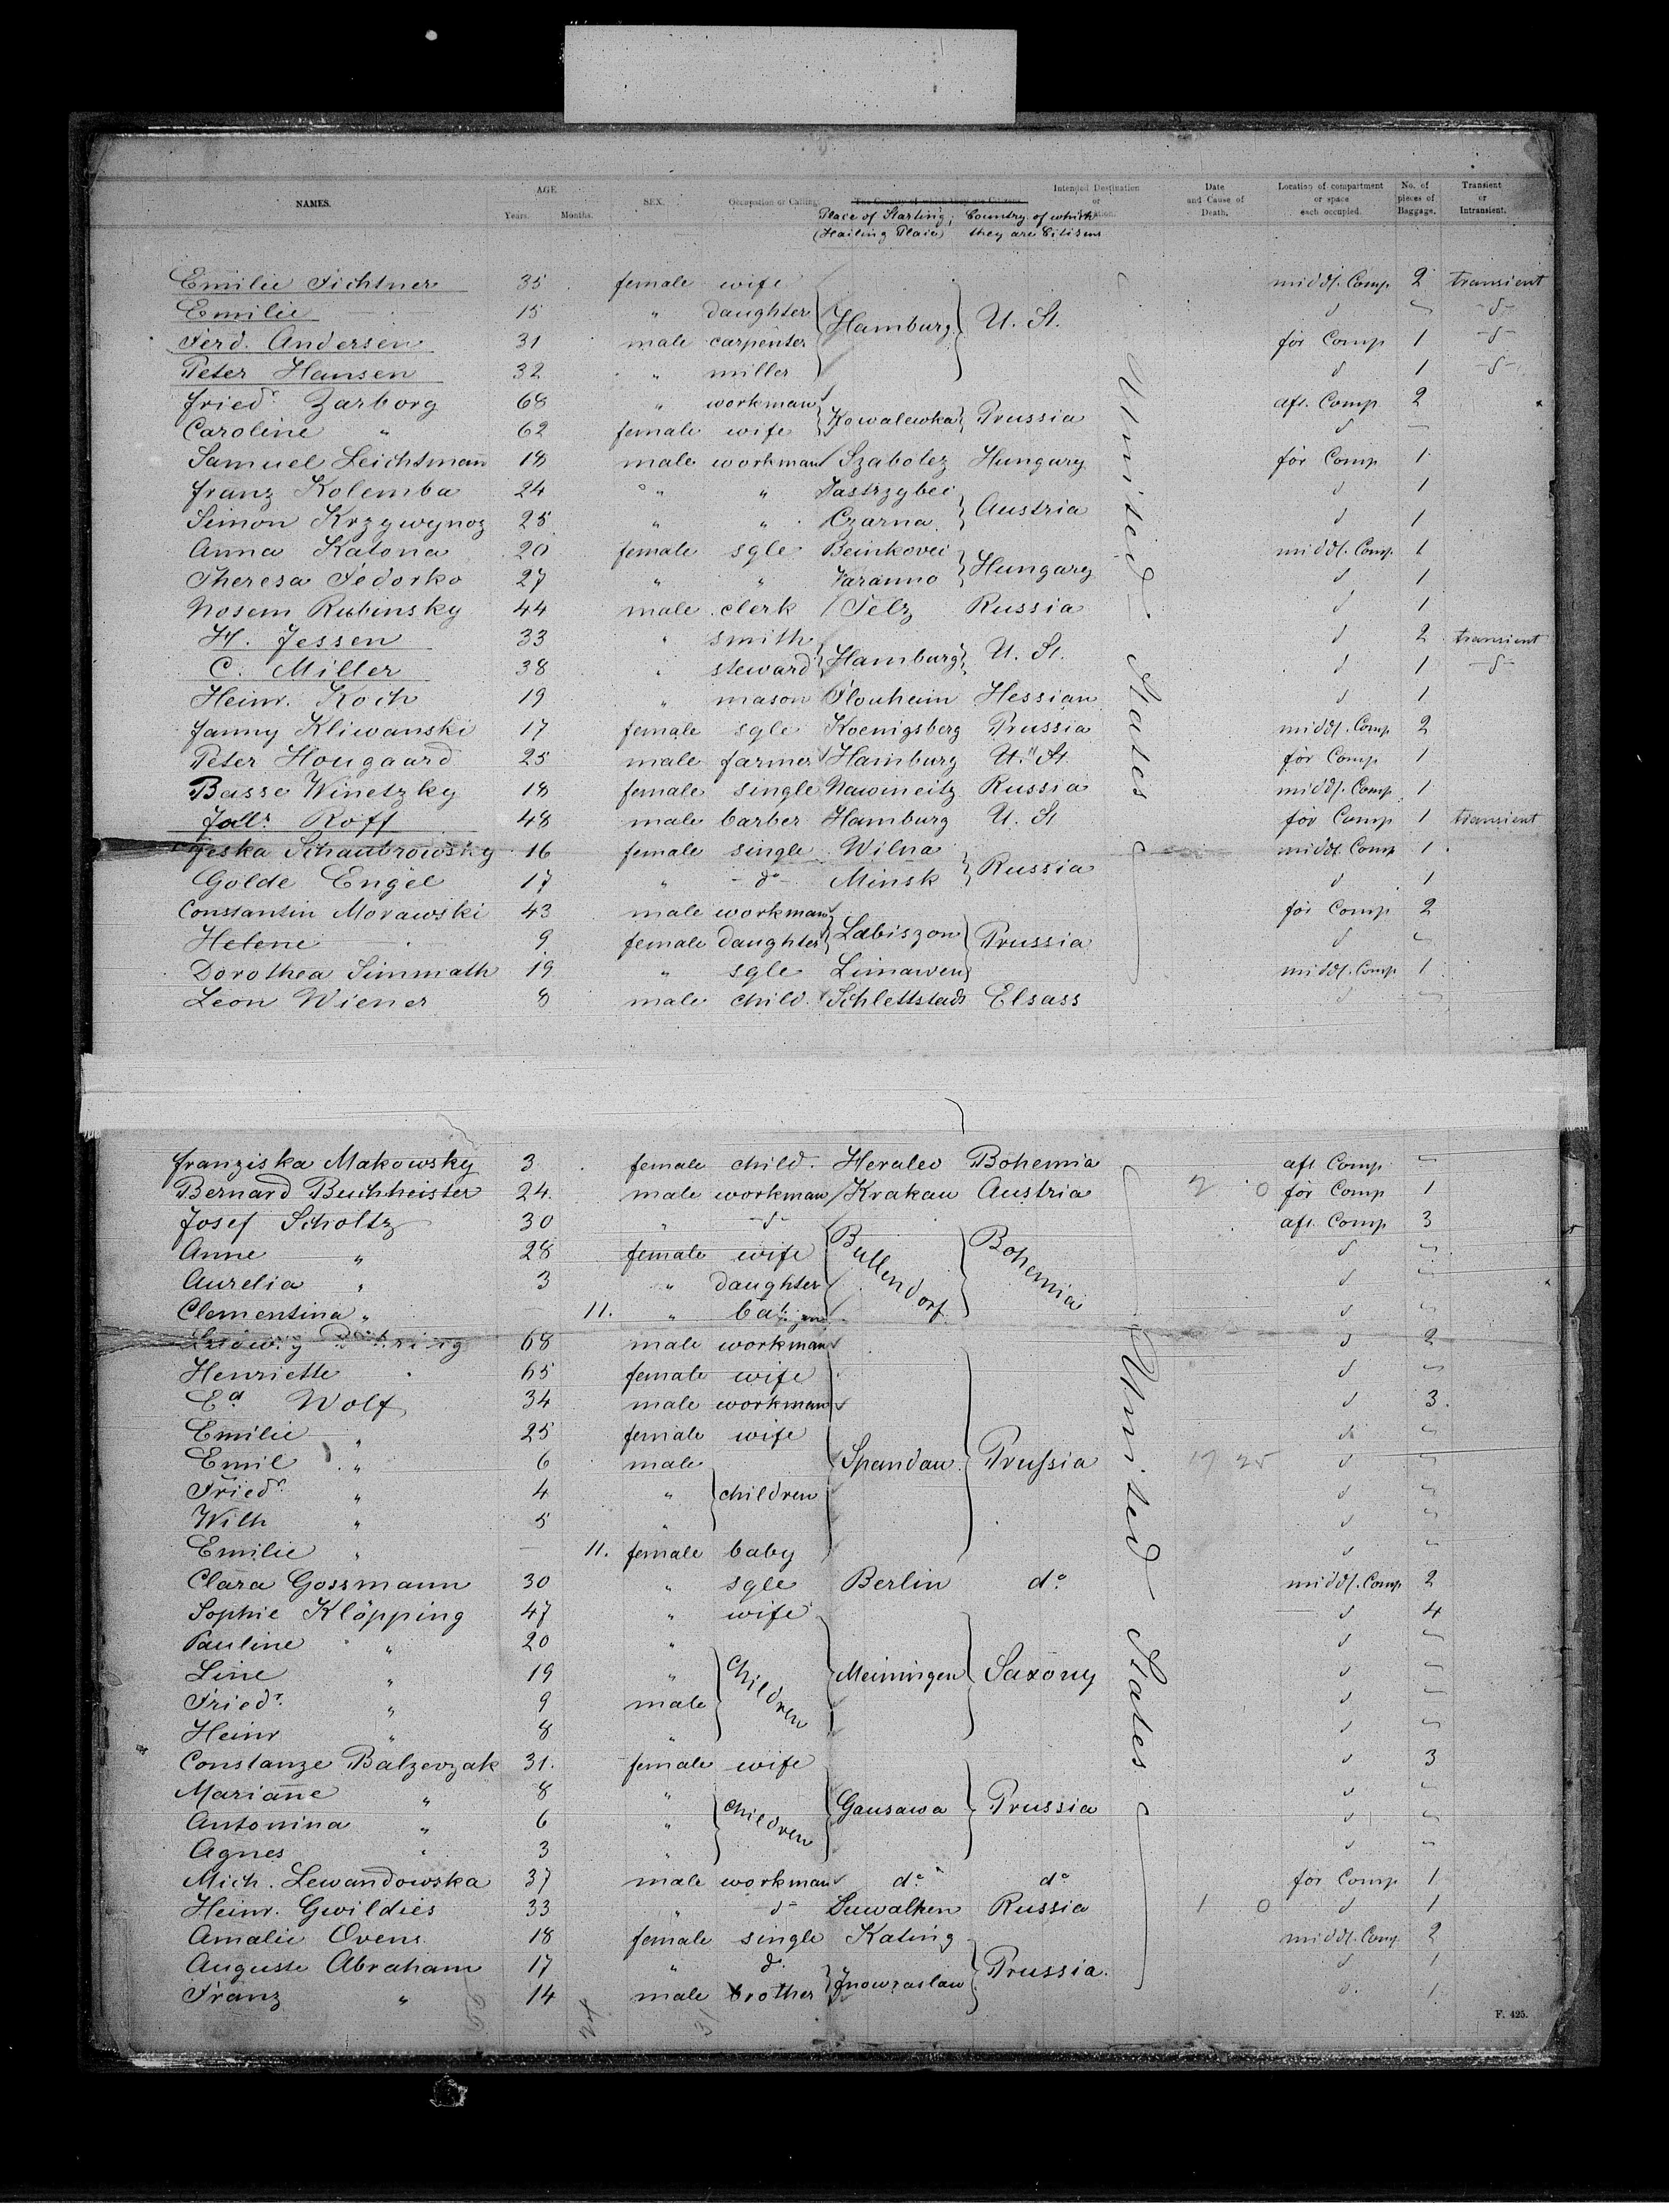 NAMES. AGE Years. Months. SEX. Occupation or Calling. The Country of which they are Citizens. Intended Destination or Location. Date and Cause of Death. Location of compartment or space each occupied. No. of pieces of Baggage. Transient or Intransient.
Place of Starting; (Hailing Place) Country of which they are Citizens
Emilie Fichtner 35 female wife middl. Comp 2 transient
Emilie 15 " daughter Hamburg U. St. d -d-
Ferd. Andersen 31 male carpenter for Comp 1 -d-
Peter Hansen 32 " miller d 1 -d-
Friedr. Zarborg 68 " workman aft. Comp 2
Caroline " 62 female wife Kowalewka Prussia d
Samuel Leichtman̄ 18 male workman Szabolez Hungary for Comp 1
Franz Kolemba 24 " " Jastrzybei d 1
Simon Krzywynoz 25 " " Czarna Austria d 1
Anna Katona 20 female sgle Beinkovei middl. Comp. 1
Theresa Fedorko 27 " " Varanno Hungary d 1
Nosem Rubinsky 44 male clerk Telz Russia d 1
H. Jessen 33 " smith d 2 transient
C. Miller 38 " steward Hamburg U. St. d 1 -d-
Heinr. Koch 19 " mason Flonheim Hessian d 1
Fanny Kliwanski 17 female sgle Koenigsberg Prussia middl. Comp 2
Peter Hougaard 25 male farmer Hamburg U. St. for Comp 1
Basse Winetzky 18 female single Nawmeitz Russia middl. Comp 1
Roff 48 male barber Hamburg U. St for Comp 1 transient
Jeska Schaubrowsky 16 female single Wilna middl. Comp 1
Golde Engel 17 " -do- Minsk Russia d 1
Constantin Morawski 43 male workman for Comp 2
Helene 9 female daughter Labiszon Prussia d
Dorothea Simmath 19 " sgle Limawen middl. Comp 1
Leon Wiener 8 male child. Schlettstadt Elsass d
United States
Franziska Makowsky 3 female child. Heralec Bohemia aft Comp
Bernard Buchheister 24. male workman Krakau Austria 2 0 for Comp 1
Josef Scholtz 30 " -d- aft. Comp 3
Anne " 28 female wife Bullendorf Bohemia d
Aurelia " 3 " daughter d
Clementina " 11. " d
68 male workman d 2
Henriette 65 female wife d
Ed Wolf 34 male workman d 3.
Emilie " 25 female wife do
Emil " 6 male Spandau Prussia 17 25 d
Friedr. " 4 " children d
Wilh " 5 " d
Emilie " 11. female baby d
Clara Gossmann 30 " sgle Berlin do middl. Comp 2
Sophie Klöpping 47 " wife d 4
Pauline " 20 " d
Line " 19 " Children Meiningen Saxony d
Friedr. " 9 male d
Heinr " 8 " d
Constanze Balzerzak 31. female wife d 3
Marian̄e " 8 " d
Antonina " 6 " children Gausawa Prussia d
Agnes " 3 " d
Mich. Lewandowska 37 male workman do do for Comp 1
Heinr. Gwildies 33 " d Suwalken Russia 1 0 d 1
Amalie Ovens 18 female single Kating middl. Comp. 2
Auguste Abraham 17 " do Prussia. d 1
Franz " 14 male brother Inowraslaw d. 1
United States
F. 425.